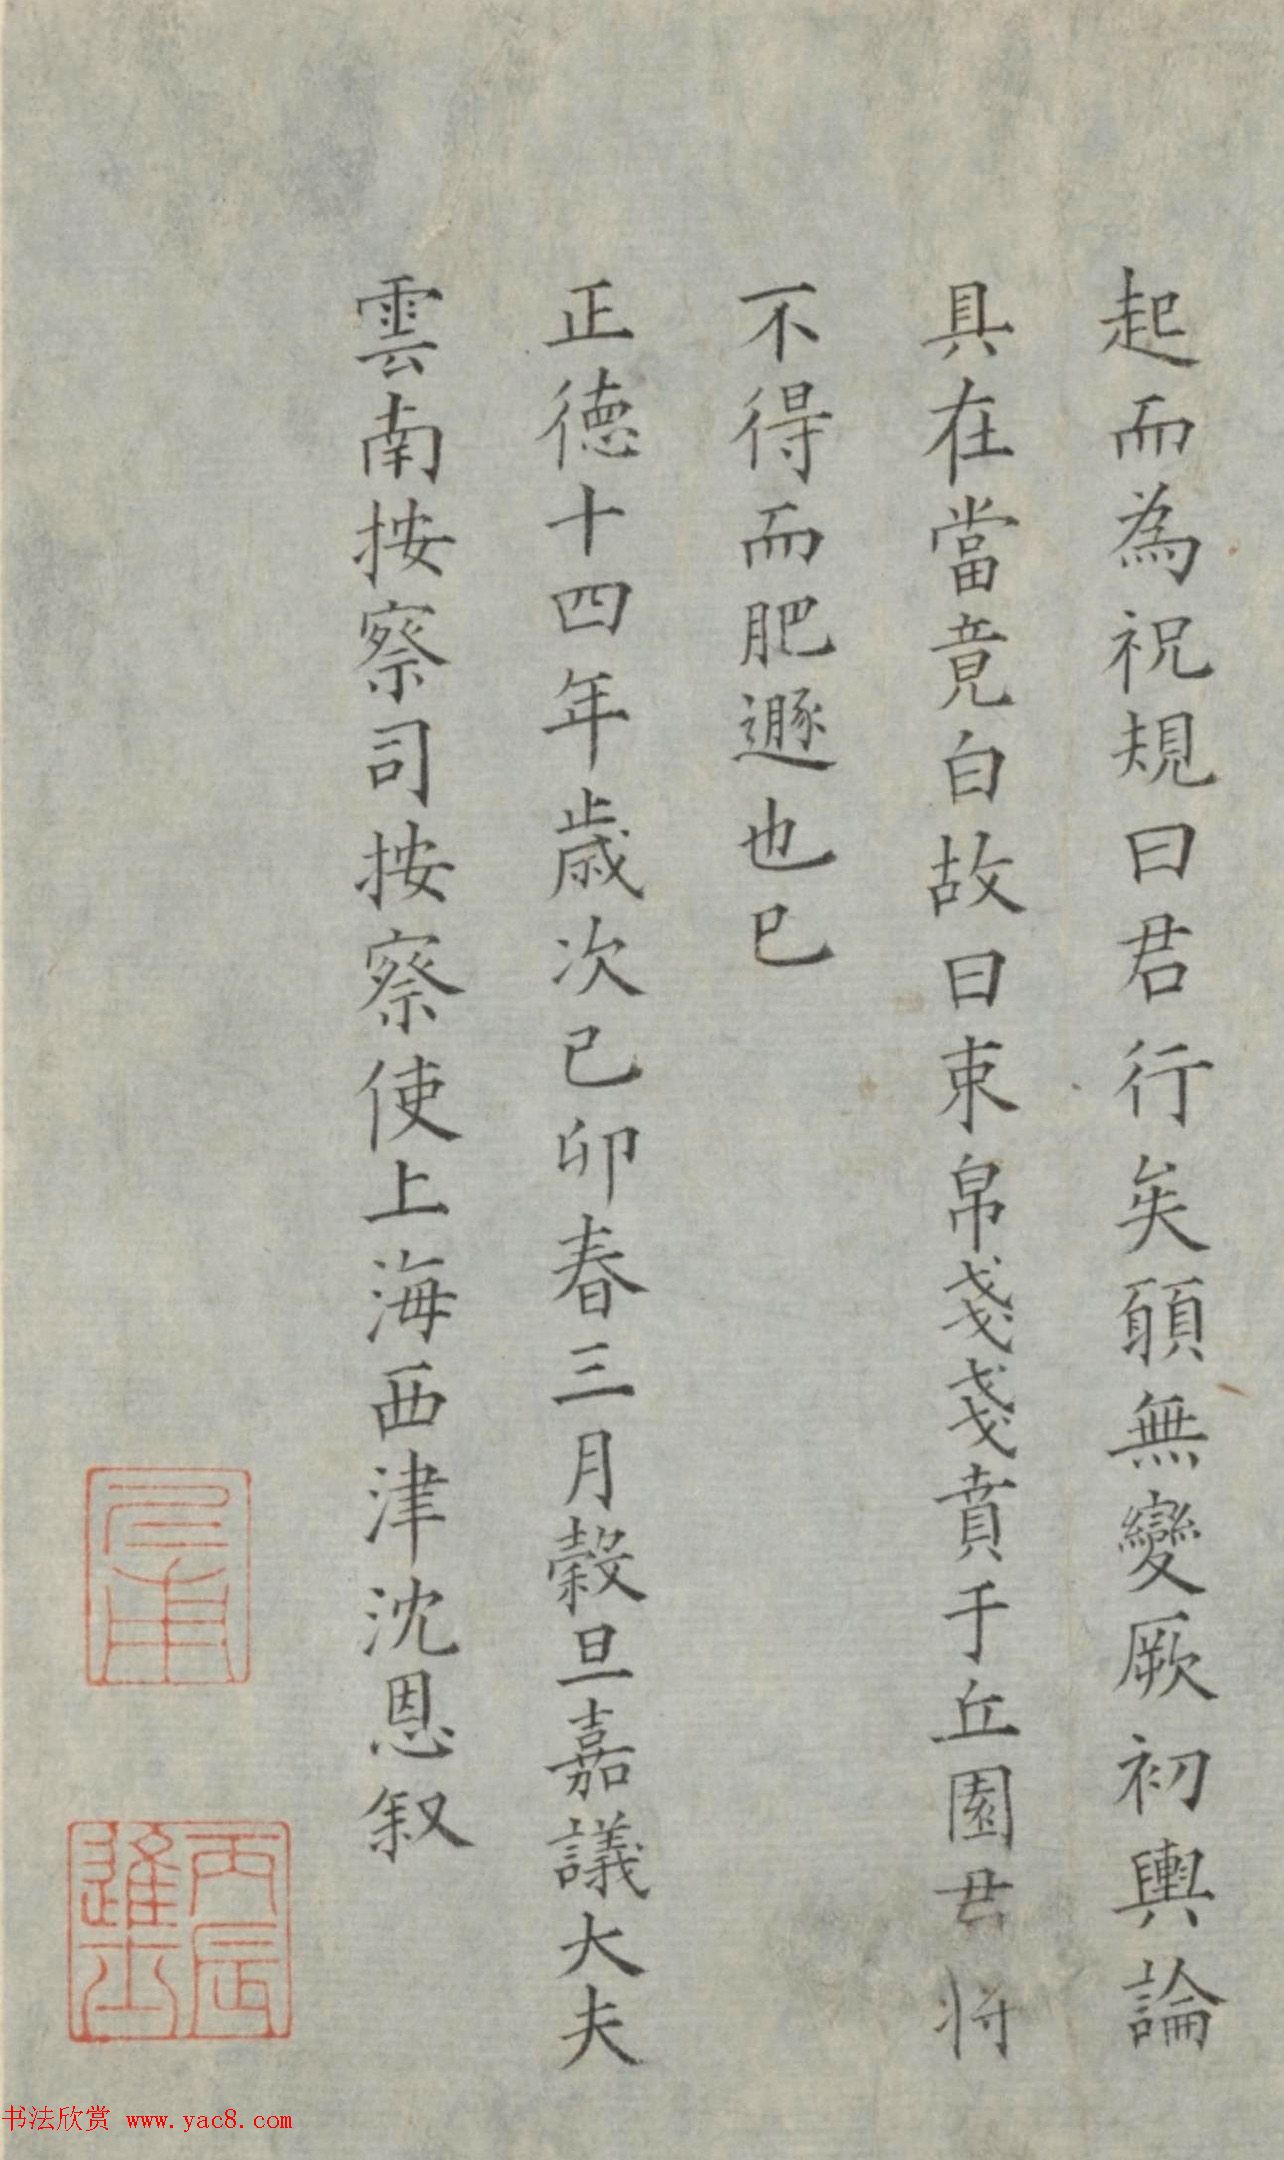 起而為祝規曰君行矣頋無變厥初輿論
具在當竟白故曰束帛戔戔賁于丘園君將
不得而肥遯也已
正德十四年歲次己卯春三月穀旦嘉議大夫
雲南按察司按察使上海西津沈恩叙
仁甫
丙辰進士
书法欣赏 www.yac8.com